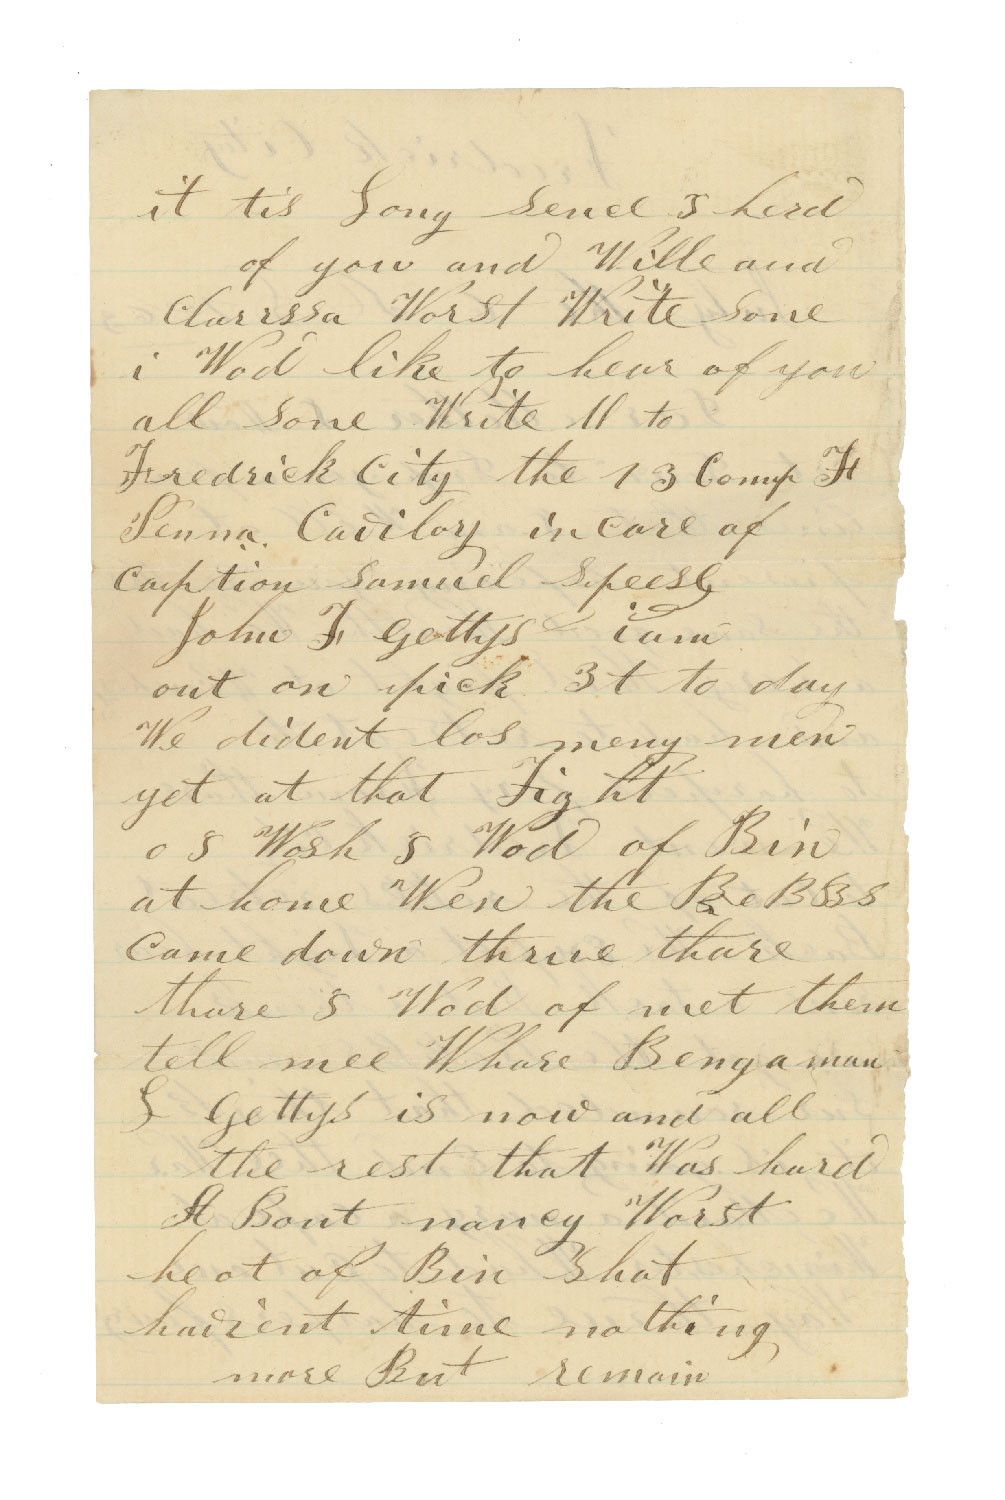 it tis Long sence I herd
of you and Wille and
Clarrssa Worst Write sone
i Wod like to hear of you
all sone Write 11 to
Fredrick City the 13 Comp F
Penna. Cavilory in care of
caption Samuel Speese
John F Gettys i am
out on pick 3t to day
We dident los meny men
yet at that Fight
o I Wosh I Wod of Bin
at home Wen the ReBSSS
Came down thrue thare
thare I Wod of met them
tell mee Whare Bengaman
L Gettys is now and all
the rest that Was hard
A Bout nancy Worst
he ot of Bin Shot
havient time nothing
more But remain